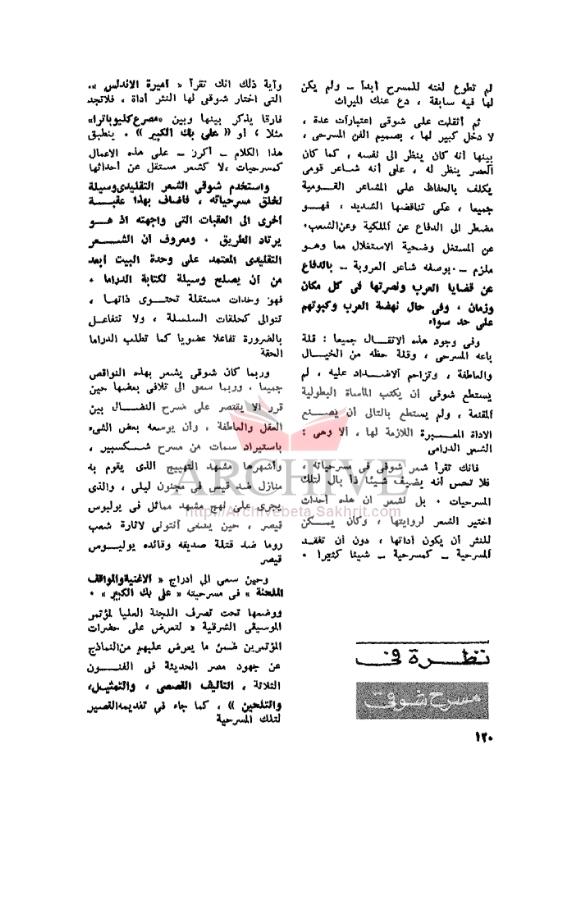 لم تطوع لغته للمسرح أبدا – ولم يكن
لها فيه سابقة ، دع عنك الميراث
ثم أثقلت على شوقى اعتبارات عدة ،
لا دخل كبير لها ، بصميم الفن المسرحى ،
بينها أنه كان ينظر الى نفسه ، كما كان
العصر ينظر له ، على أنه شاعر قومى
يكلف بالحفاظ على المشاعر القومية
جميعا ، على تناقضها الشديد : فهو
مضطر الى الدفاع عن الملكية وعن الشعب،
عن المستغل وضحية الاستغلال معا وهو
ملزم – بوصفه شاعر العروبة – بالدفاع
عن قضايا العرب ونصرتها فى كل مكان
وزمان ، وفى حال نهضة العرب وكبوتهم
على حد سواء
وفى وجود هذه الاثقال جميعا : قلة
باعه المسرحى ، وقلة حظه من الخيال
والعاطفة ، وتزاحم الاضداد عليه ، لم
يستطع شوقى أن يكتب المأساة البطولية
المقنعة ، ولم يستطع بالتالى أن يصنع
الاداة المعبرة اللازمة لها ، ألا وهى :
الشعر الدرامى
فانك تقرأ شعر شوقى فى مسرحياته ،
فلا تحس أنه يضيف شيئا ذا بال لتلك
المسرحيات ٠ بل تشعر ان هذه أحداث
اختير الشعر لروايتها ، وكان يمكن
للنثر أن يكون أداتها ، دون أن تفقد
المسرحية – كمسرحية – شيئا كثيرا ٠
نظرة فى
مسرح شوقى
١٢٠
وآية ذلك انك تقرأ « أميرة الاندلس »،
التى اختار شوقى لها النثر أداة ، فلاتجد
فارقا يذكر بينها وبين «مصرع كليوباترا»
مثلا ، أو « على بك الكبير » ٠ ينطبق
هذا الكلام – أكرر – على هذه الاعمال
كمسرحيات ،لا كشعر مستقل عن أحداثها
واستخدم شوقى الشعر التقليدى وسيلة
لخلق مسرحياته ، فأضاف بهذا عقبة
أخرى الى العقبات التى واجهته اذ هو
يرتاد الطريق ٠ ومعروف أن الشعر
التقليدى المعتمد على وحدة البيت أبعد
من أن يصلح وسيلة لكتابة الدراما ٠
فهو وحدات مستقلة تحتوى ذاتها ،
تتوالى كحلقات السلسلة ، ولا تتفاعل
بالضرورة تفاعلا عضويا كما تطلب الدراما
الحقة
وربما كان شوقى يشعر بهذه النواقص
جميعا ، وربما سعى الى تلافى بعضها حين
قرر ألا يقتصر على مسرح النضال بين
العقل والعاطفة ، وأن يوسعه بعض الشىء
باستيراد سمات من مسرح شكسبير ،
وأشهرها مشهد التهييج الذى يقوم به
منازل ضد قيس فى مجنون ليلى ، والذى
يجرى على نهج مشهد مماثل فى يوليوس
قيصر ، حين يسعى أنتونى لاثارة شعب
روما ضد قتلة صديقه وقائده يوليوس
قيصر
وحين سعى الى ادراج « الاغنية والمواقف
الملحنة » فى مسرحيته « على بك الكبير » ٠
ووضعها تحت تصرف اللجنة العليا لمؤتمر
الموسيقى الشرقية « لتعرض على حضرات
المؤتمرين ضمن ما يعرض عليهم من النماذج
عن جهود مصر الحديثة فى الفنون
الثلاثة ، التأليف القصصى ، والتمثيل،
والتلحين » ، كما جاء فى تقديمه القصير
لتلك المسرحية
ARCHIVE
http://Archivebeta.Sakhrit.com